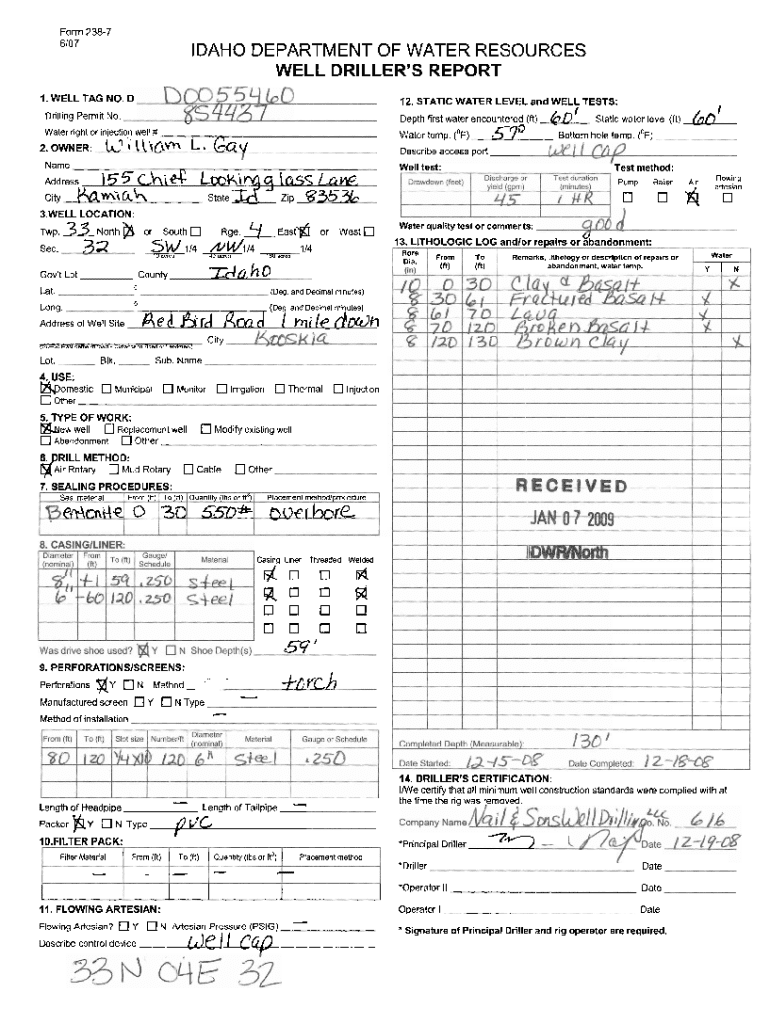 Form 238-7
6/07
IDAHO DEPARTMENT OF WATER RESOURCES
WELL DRILLER'S REPORT
1. WELL TAG NO. D D0055460
Drilling Permit No. 854437
Water right or injection well #
2. OWNER: William L. Gay
Name
Address 155 Chief Looking glass Lane
City Kamiah State Id Zip 83536
3.WELL LOCATION:
Twp. 33 North X or South Rge. 4 East X or West
Sec. 32 SW 1/4 NW 1/4 1/4
10 acres 40 acres 160 acres
Gov't Lot County Idaho
Lat. (Deg. and Decimal minutes)
Long. (Deg. and Decimal minutes)
Address of Well Site Red Bird Road 1 mile down
City Kooskia
Lot. Blk. Sub. Name
4. USE:
X Domestic Municipal Monitor Irrigation Thermal Injection
Other
5. TYPE OF WORK:
X New well Replacement well Modify existing well
Abandonment Other
6. DRILL METHOD:
X Air Rotary Mud Rotary Cable Other
7. SEALING PROCEDURES:
Seal material From (ft) To (ft) Quantity (lbs or ft³) Placement method/procedure
Bentonite 0 30 550# overbore
8. CASING/LINER:
Diameter (nominal) From (ft) To (ft) Gauge/ Schedule Material Casing Liner Threaded Welded
8" +1 59 .250 Steel X X
6" -60 120 .250 Steel X X
Was drive shoe used? X Y N Shoe Depth(s) 59'
9. PERFORATIONS/SCREENS:
Perforations X Y N Method torch
Manufactured screen Y N Type —
Method of installation —
From (ft) To (ft) Slot size Number/ft Diameter (nominal) Material Gauge or Schedule
80 120 1/4 X10 120 6" Steel .250
Length of Headpipe — Length of Tailpipe —
Packer X Y N Type PVC
10.FILTER PACK:
Filter Material From (ft) To (ft) Quantity (lbs or ft³) Placement method
— — — — —
11. FLOWING ARTESIAN:
Flowing Artesian? Y N Artesian Pressure (PSIG) —
Describe control device well cap
33N 04E 32
12. STATIC WATER LEVEL and WELL TESTS:
Depth first water encountered (ft) 60' Static water level (ft) 60'
Water temp. (°F) 57° Bottom hole temp. (°F)
Describe access port well cap
Well test: Test method:
Drawdown (feet) Discharge or yield (gpm) Test duration (minutes) Pump Bailer Air Flowing artesian
45 1 HR X
Water quality test or comments: good
13. LITHOLOGIC LOG and/or repairs or abandonment:
Bore Dia. (in) From (ft) To (ft) Remarks, lithology or description of repairs or abandonment, water temp. Water Y N
10 0 30 Clay & Basalt X
8 30 61 Fractured Basalt X
8 61 70 Lava X
8 70 120 Broken Basalt X
8 120 130 Brown Clay X
RECEIVED
JAN 07 2009
IDWR/North
Completed Depth (Measurable): 130'
Date Started: 12-15-08 Date Completed: 12-18-08
14. DRILLER'S CERTIFICATION:
I/We certify that all minimum well construction standards were complied with at
the time the rig was removed.
Company Name Nail & Sons Well Drilling LLC Co. No. 616
*Principal Driller Date 12-19-08
*Driller Date
*Operator II Date
Operator I Date
* Signature of Principal Driller and rig operator are required.